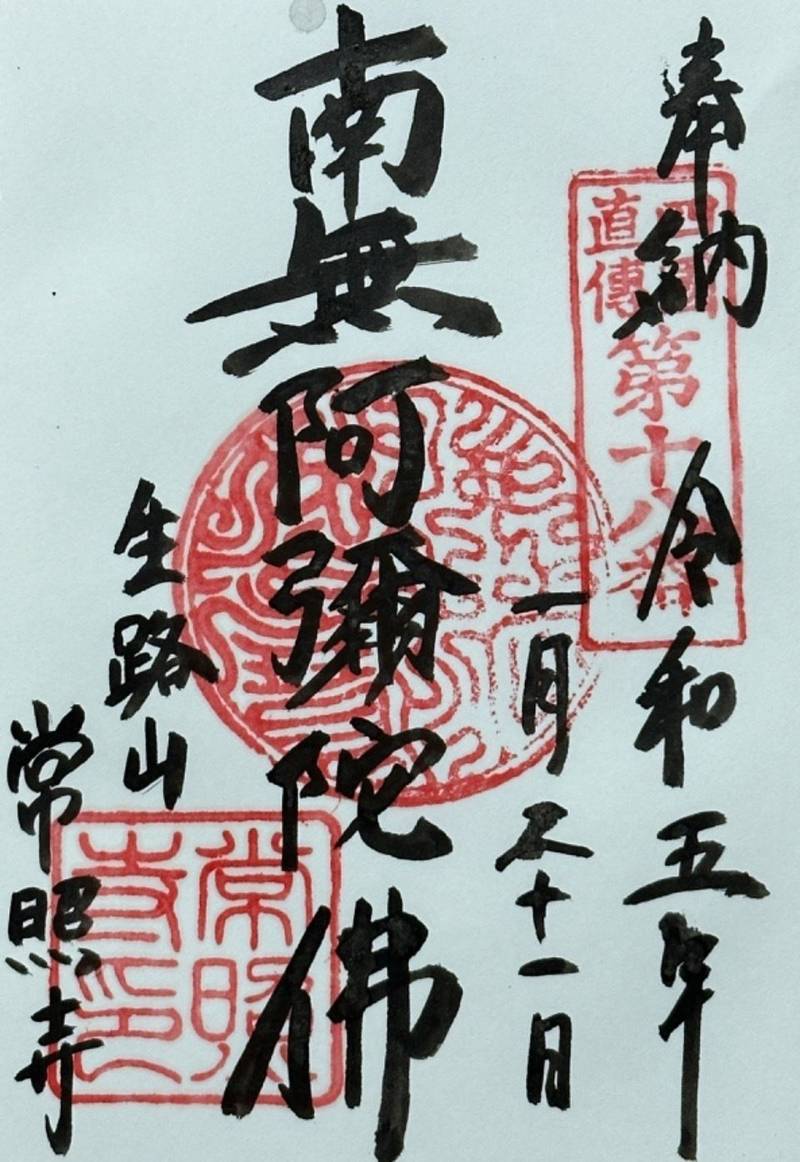 奉納 令和五年
一月二十一日
南無阿彌陀佛
生路山
常照寺
四國
直傳
第十八番
常照
寺印